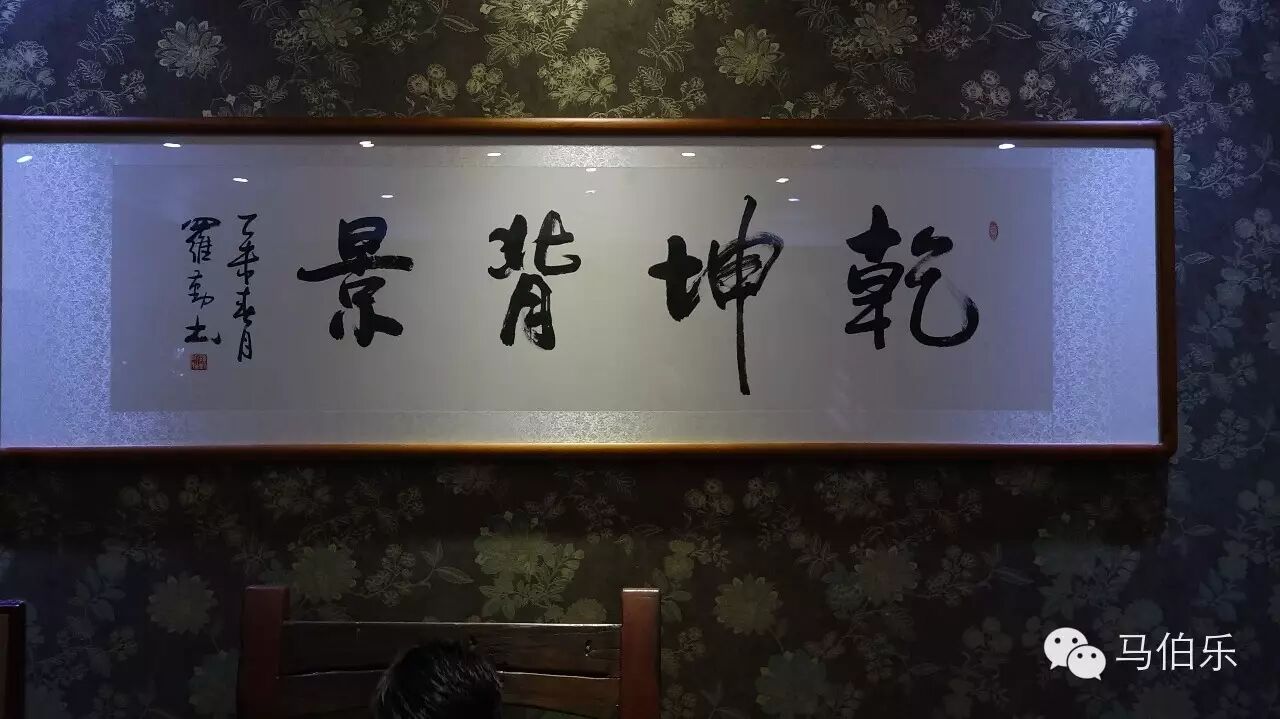 乾坤背景
乙未春月
羅勤书
马伯乐